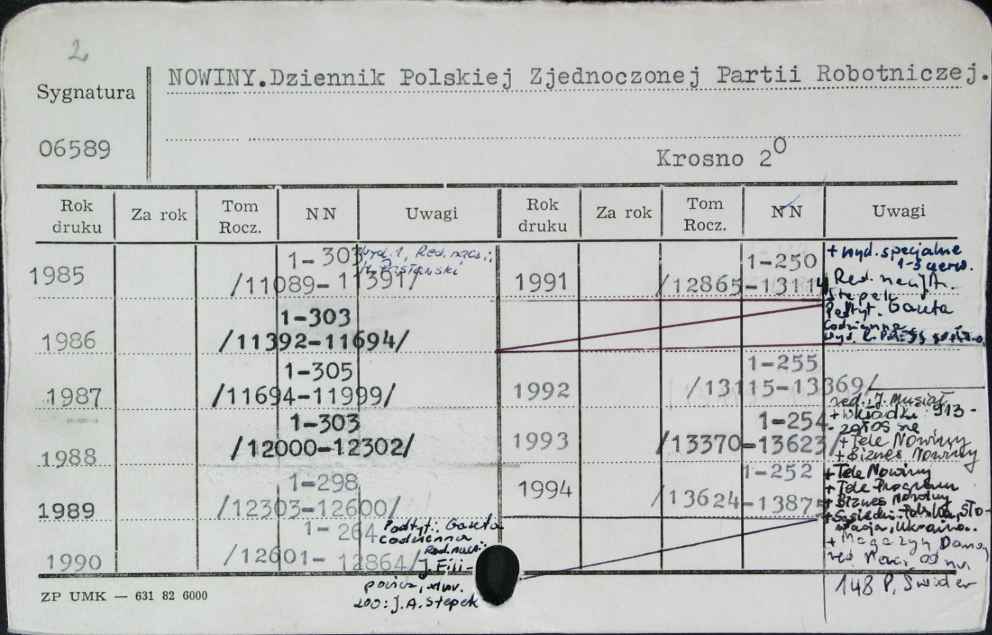 2
NOWINY.Dziennik Polskiej Zjednoczonej Partii Robotniczej.
Sygnatura
06589
Krosno 2⁰
Rok druku | Za rok | Tom Rocz. | NN | Uwagi | Rok druku | Za rok | Tom Rocz. | NN | Uwagi
1985 1-303 wyd. 1, Red. nacz.:
/11089-11391/
1986 1-303
/11392-11694/
1987 1-305
/11694-11999/
1988 1-303
/12000-12302/
1989 1-298
/12303-12600/
1990 1-264
/12601-12864/
Podtyt.: Gazeta
codzienna
Red. nacz.:
J. Fili-
powicz,
200: J.A. Stepek
1991 1-250
/12865-13114
+ wyd. specjalne
Red. nacz.
Stepek
Podtyt. Gazeta
codzienna
1992 1-255
/13115-13369/
red. J. Musiał
1993 1-254
/13370-13623/
+ Tele Nowiny
+ Biznes Nowiny
1994 1-252
/13624-13875
+ Tele Nowiny
+ Tele Program
+ Biznes Nowiny
Polska, Sło-
wacja, Ukraina.
+ Magazyn
red. nacz. od nr.
148 P. Świder
ZP UMK — 631 82 6000